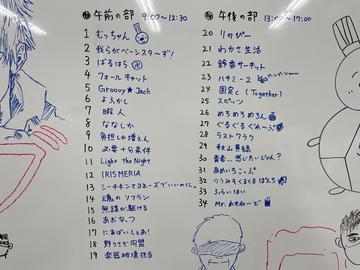 午前の部 9:00〜12:30
1 むっちゃん
2 我らがベーシスターず!
3 ぱるはろ
4 フォールキャット
5 Groovy★Jack
6 よふかし
7 暇人
8 ななしか
9 負担しか増えん
10 必要十分条件
11 Light the Night
12 IRISMERIA
13 シーチキンマヨネーズでいいのに。
14 魂のリフラン
15 無謀が駆ける
16 あおなつ
17 にあはいしぇあ!
18 野うさぎ同盟
19 楽器破壊担当
午後の部 13:00〜17:00
20 りのぴー
21 わかさ生活
22 鈴音サーキット
23 ハチミー2
24 固定c (Together)
25 スピッツ
26 めろめろめろん
27 ぐるぐるぐれーぷ
28 ラストワラク
29 秋山黄緑
30 青春...感じたいじゃん?
31 あめいろこーぷ
32
33 ふらいはい
34 Mr.